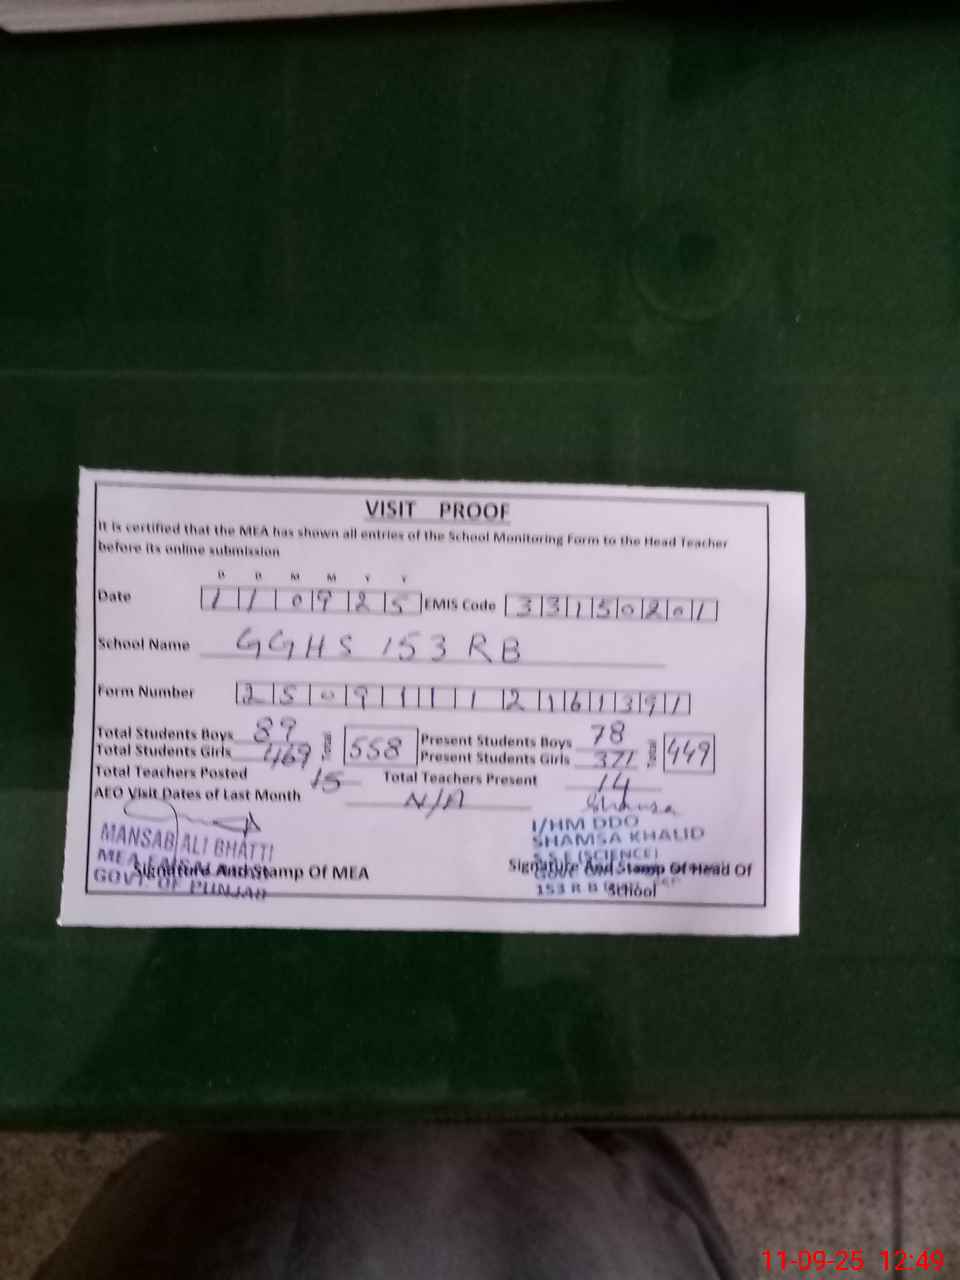 VISIT PROOF
It is certified that the MEA has shown all entries of the School Monitoring Form to the Head Teacher
before its online submission
D D M M Y Y
Date 110925 EMIS Code 33150201
School Name GGHS 153 RB
Form Number 250911112161391
Total Students Boys 89 Total 558 Present Students Boys 78 Total 449
Total Students Girls 469 Present Students Girls 371
Total Teachers Posted 15 Total Teachers Present 14
AEO Visit Dates of Last Month N/A
Shamsa
MANSAB ALI BHATTI
MEA
GOVT. OF PUNJAB
Signature And Stamp Of MEA
I/HM DDO
SHAMSA KHALID
S.S.E (SCIENCE)
153 R B
Signature And Stamp Of Head Of
School
11-09-25 12:49